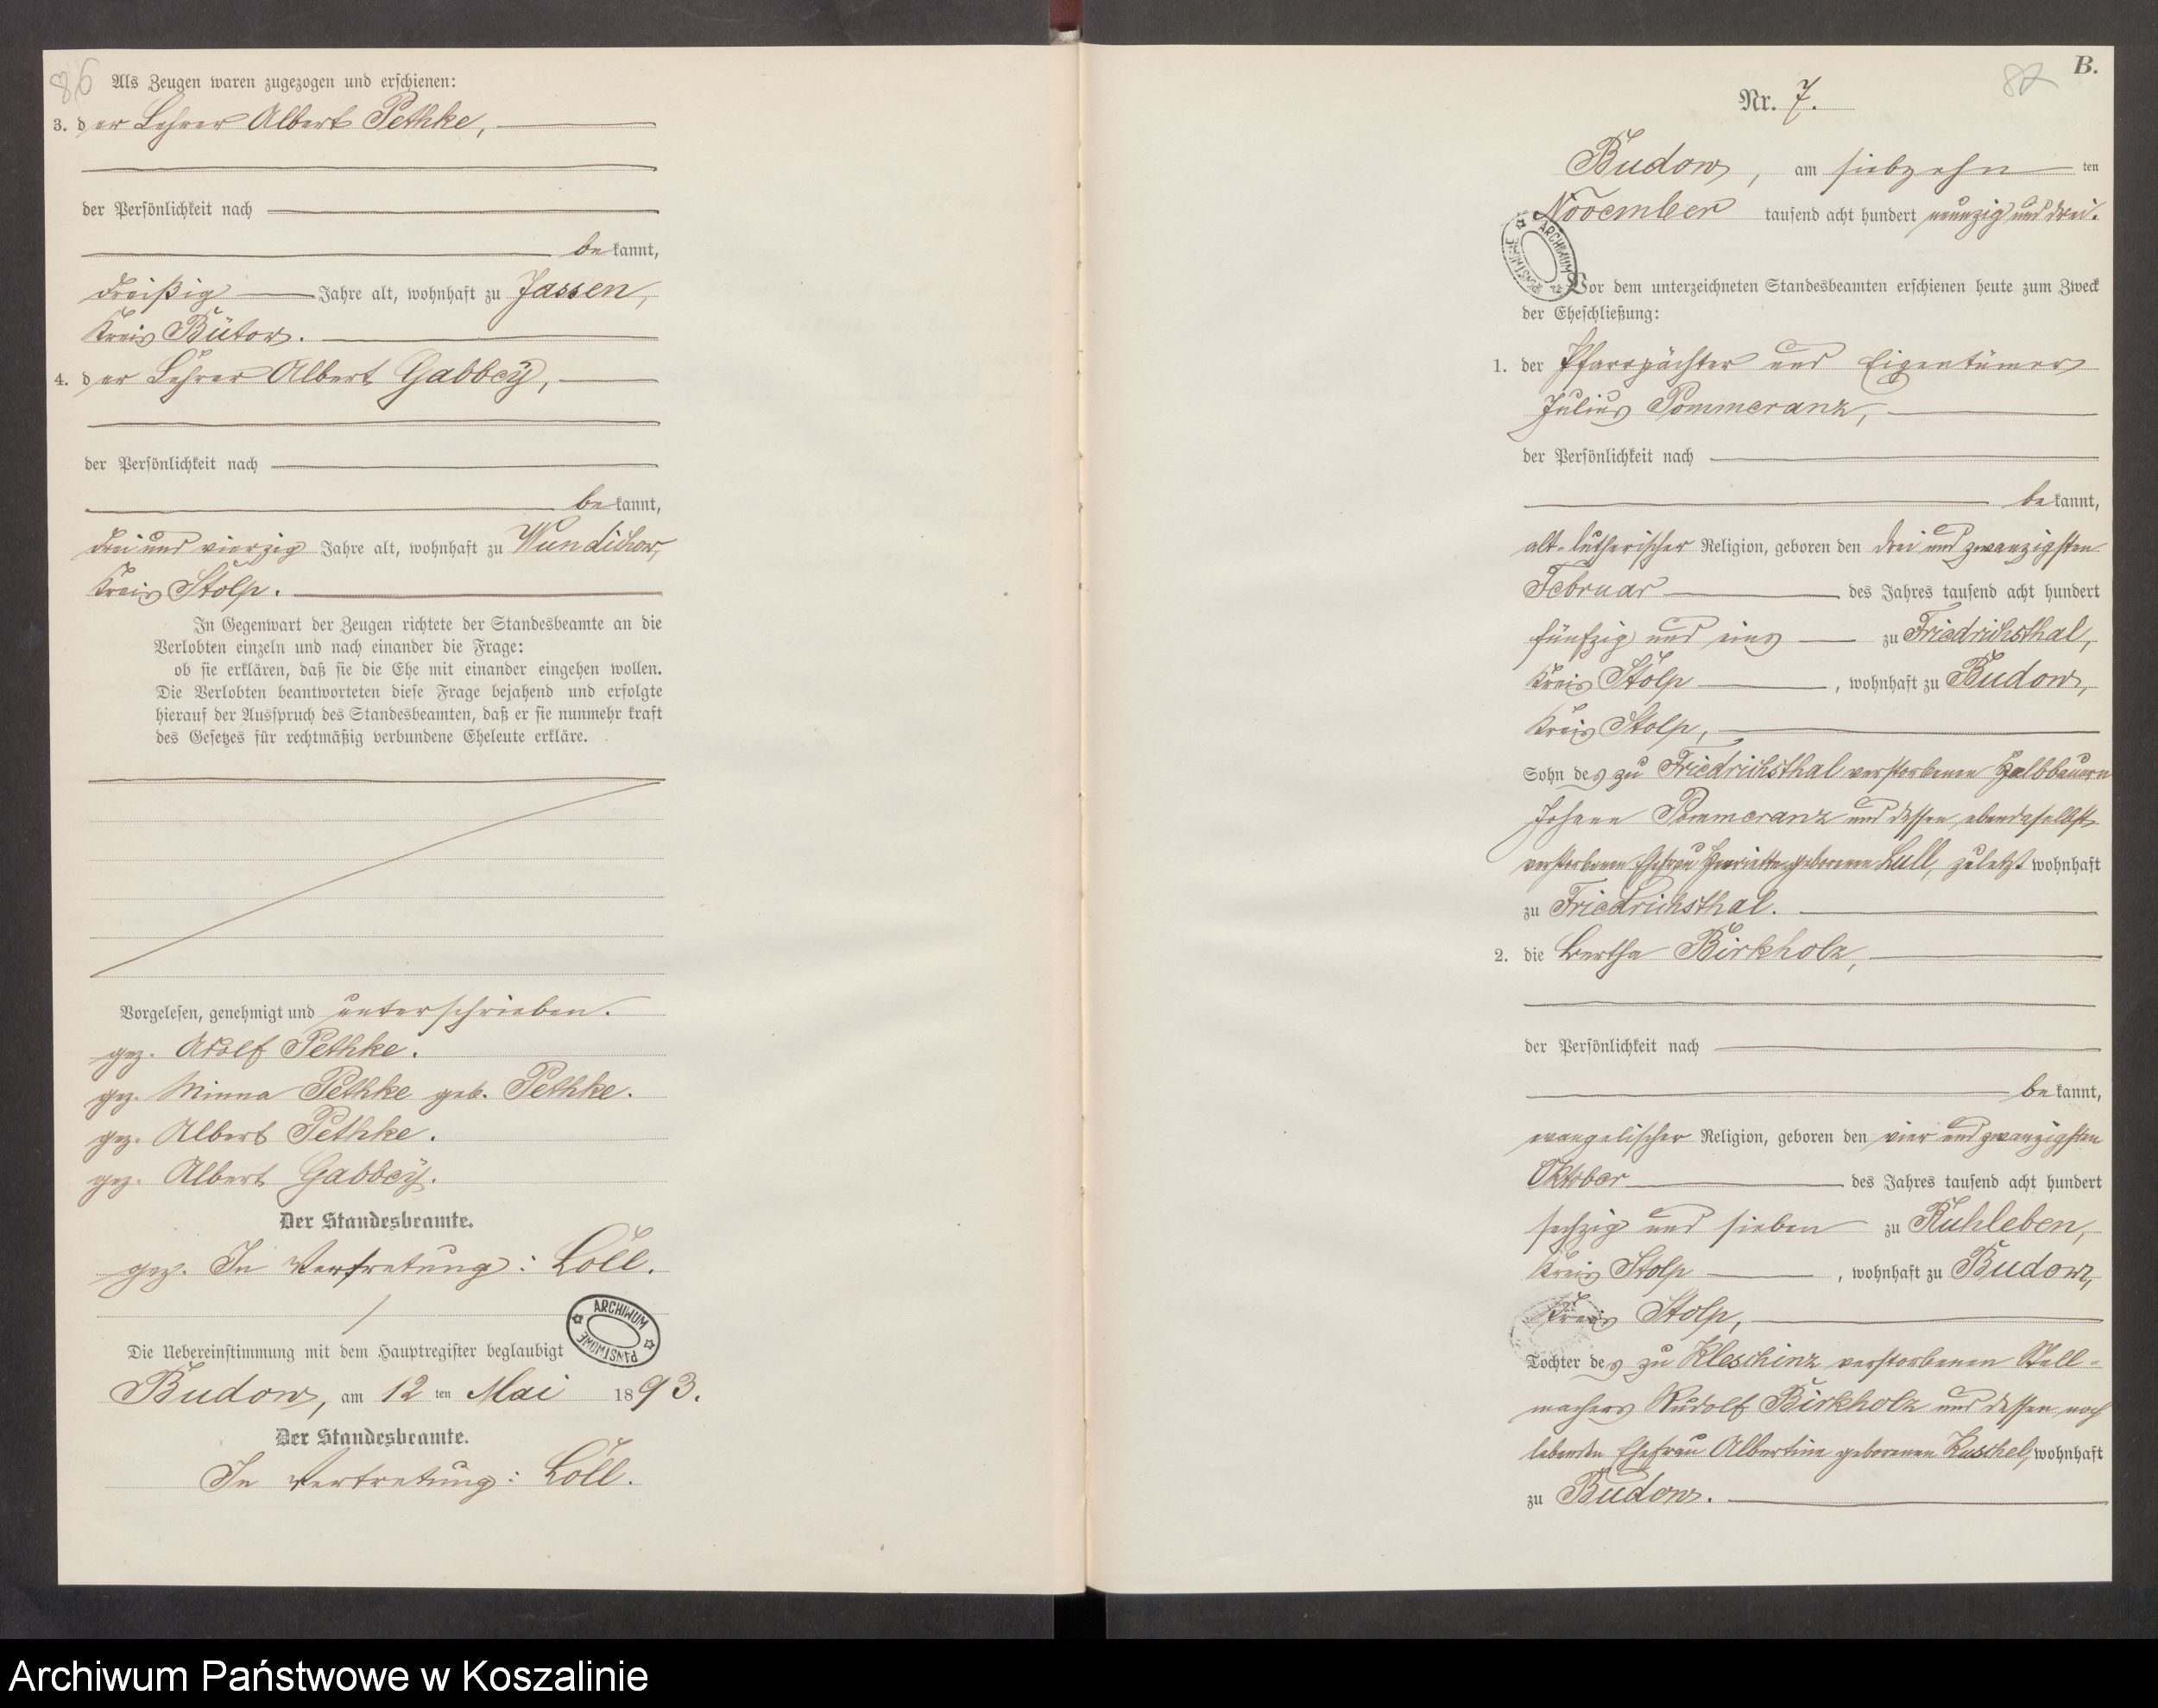 86
Als Zeugen waren zugezogen und erschienen:
3. der Lehrer Albert Pethke,
der Persönlichkeit nach
bekannt,
dreißig Jahre alt, wohnhaft zu Jassen,
Kreis Bütow.
4. der Lehrer Albert Gabbey,
der Persönlichkeit nach
bekannt,
drei und vierzig Jahre alt, wohnhaft zu Wundichow,
Kreis Stolp.
In Gegenwart der Zeugen richtete der Standesbeamte an die
Verlobten einzeln und nach einander die Frage:
ob sie erklären, daß sie die Ehe mit einander eingehen wollen.
Die Verlobten beantworteten diese Frage bejahend und erfolgte
hierauf der Ausspruch des Standesbeamten, daß er sie nunmehr kraft
des Gesetzes für rechtmäßig verbundene Eheleute erkläre.
Vorgelesen, genehmigt und unterschrieben.
gez. Adolf Pethke.
gez. Minna Pethke geb. Pethke.
gez. Albert Pethke.
gez. Albert Gabbey.
Der Standesbeamte.
gez. In Vertretung: Löll.
ARCHIWUM PAŃSTWOWE
Die Uebereinstimmung mit dem Hauptregister beglaubigt
Budow, am 12 ten Mai 1893.
Der Standesbeamte.
In Vertretung: Löll.
87
B.
Nr. 7.
Budow, am siebzehn ten
November tausend acht hundert neunzig und drei.
ARCHIWUM PAŃSTWOWE
Vor dem unterzeichneten Standesbeamten erschienen heute zum Zweck
der Eheschließung:
1. der Pfarrpächter und Eigentümer
Julius Pommeranz,
der Persönlichkeit nach
bekannt,
alt-lutherischer Religion, geboren den drei und zwanzigsten
Februar des Jahres tausend acht hundert
fünfzig und eins zu Friedrichsthal,
Kreis Stolp, wohnhaft zu Budow,
Kreis Stolp,
Sohn des zu Friedrichsthal verstorbenen Halbbauern
Johann Pommeranz und dessen ebendaselbst
verstorbenen Ehefrau Henriette geborenen Lull, zuletzt wohnhaft
zu Friedrichsthal.
2. die Bertha Birkholz,
der Persönlichkeit nach
bekannt,
evangelischer Religion, geboren den vier und zwanzigsten
Oktober des Jahres tausend acht hundert
sechzig und sieben zu Ruhleben,
Kreis Stolp, wohnhaft zu Budow,
Kreis Stolp,
Tochter des zu Kleschinz verstorbenen Stell-
machers Rudolf Birkholz und dessen noch
lebenden Ehefrau Albertine geborenen Kuschel, wohnhaft
zu Budow.
Archiwum Państwowe w Koszalinie